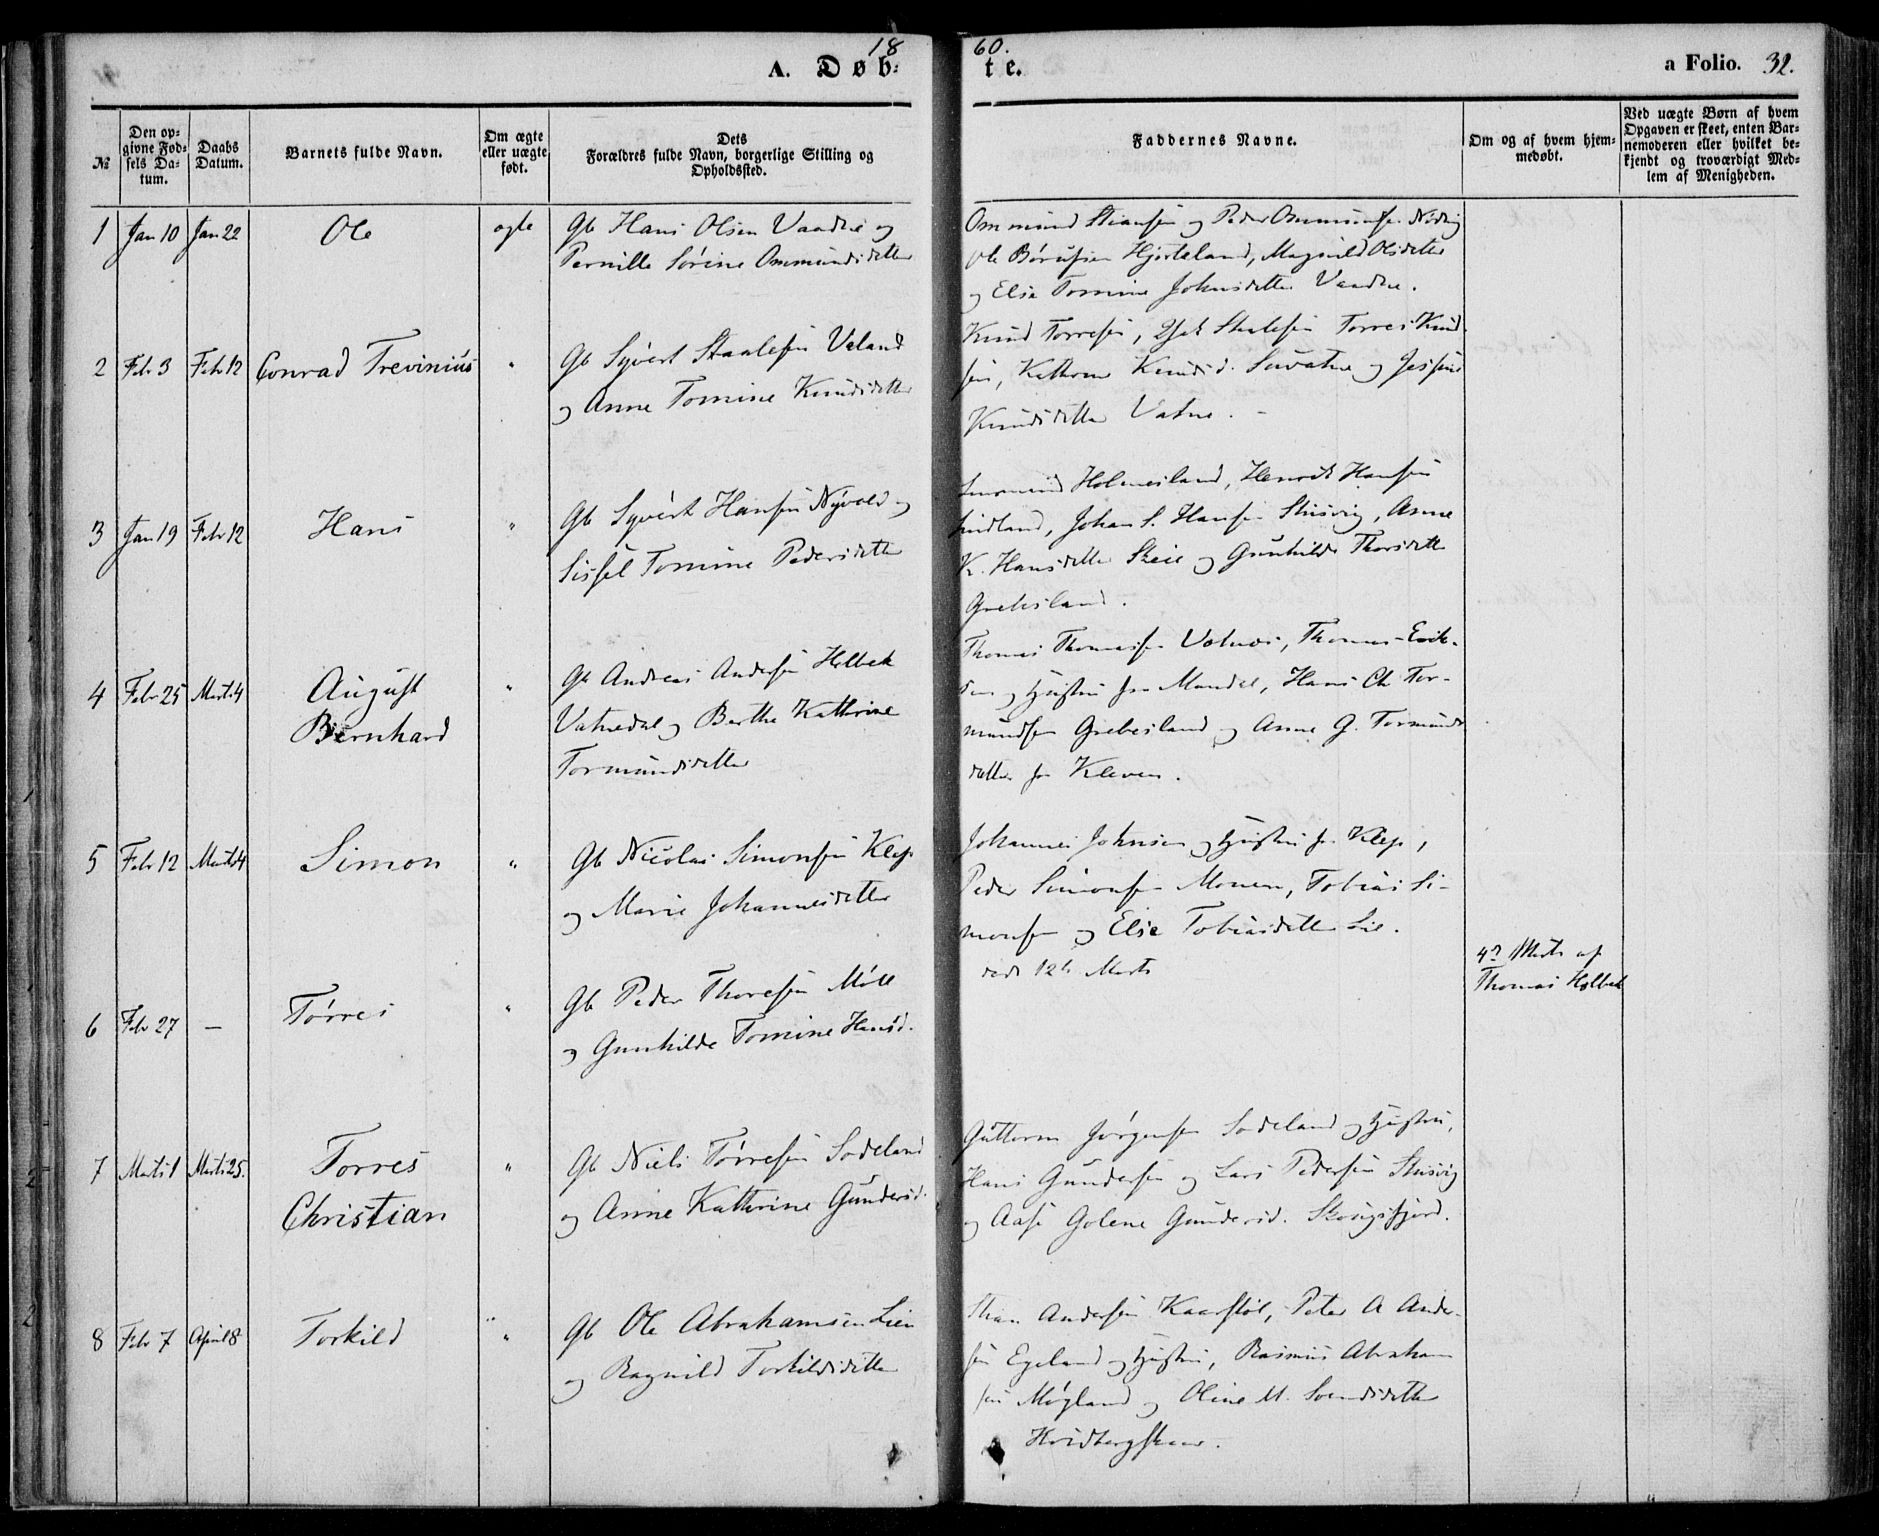 1860.
A. Døbte.
a Folio. 32.
№
Den opgivne Fødsels Datum.
Daabs Datum.
Barnets fulde Navn.
Om ægte eller uægte født.
Dets Forældres fulde Navn, borgerlige Stilling og Opholdssted.
Faddernes Navne.
Om og af hvem hjemmedøbt.
Ved uægte Børn af hvem Opgaven er skeet, enten Barnemoderen eller hvilket bekjendt og troværdigt Medlem af Menigheden.
1 Jan 10 Jan 22 Ole ægte
Gb Hans Olsen Vaadne og
Pernille Sørine Ommundsdatter
Ommund Stiansen og Peder Ommundsen
Ole Hjorteland, Magnild Olsdatter
og Else Tomine Johnsdatter Vaadne.
2 Febr 3 Febr 12 Conrad Trevinius "
Gb Syvert Staalesen Valand
og Anne Tomine Knudsdatter
Knud Torresen, Staalesen Torres Knud
sen, Kathrine Knudsd. og
Knudsdatter Vatne.
3 Jan 19 Febr 12 Hans "
Gb Syvert Hansen Nyvold og
Sissel Tomine Pedersdatter
Holmesland, Henrik Hansen
Lindland, Johan S. Hansen Skisvig, Anne
K. Hansdatter Skeie og Gunhilde Thorsdatter
Grebesland.
4 Febr 25 Marts 4 August
Bernhard "
Gb Andreas Andersen Holbek
Vatnedal og Berthe Kathrine
Tormundsdatter
Thomas Thomassen Valnes, Thomas Erik-
sen og Hustru fra Mandal, Hans Ch. Tor-
mundsen Grebesland og Anne G. Tormunds
datter fra Kleven.
5 Febr 12 Marts 4 Simon "
Gb Nicolai Simonsen Klep
og Marie Johannesdatter
Johannes Johnsen og Hustru fra Klep,
Peder Simonsen Monen, Tobias Si-
monsen og Else Tobiasdatter Lie.
6 Febr 27 — Tørres "
Gb Peder Thoresen Møll
og Gunhilde Tomine Hansd.
død 12te Marts
4de Marts af
Thomas Holbek
7 Marts 1 Marts 25. Torres
Christian "
Gb Niels Tørresen Sodeland
og Anne Kathrine Gundersd.
Guttorm Jørgensen Sodeland og Hustru,
Hans Gundersen og Lars Pedersen Skisvig
og Aase Golene Gundersd. Skougsfjord.
8 Febr 7 April 8 Torkild "
Gb Ole Abrahamsen Lien
og Ragnild Torkildsdatter
Andersen Kaarstøl, Peter A Ander-
sen Egeland og Hustru, Rasmus Abraham
sen Møgland og Oline M. Svendsdatter
Hvidbergskaar.